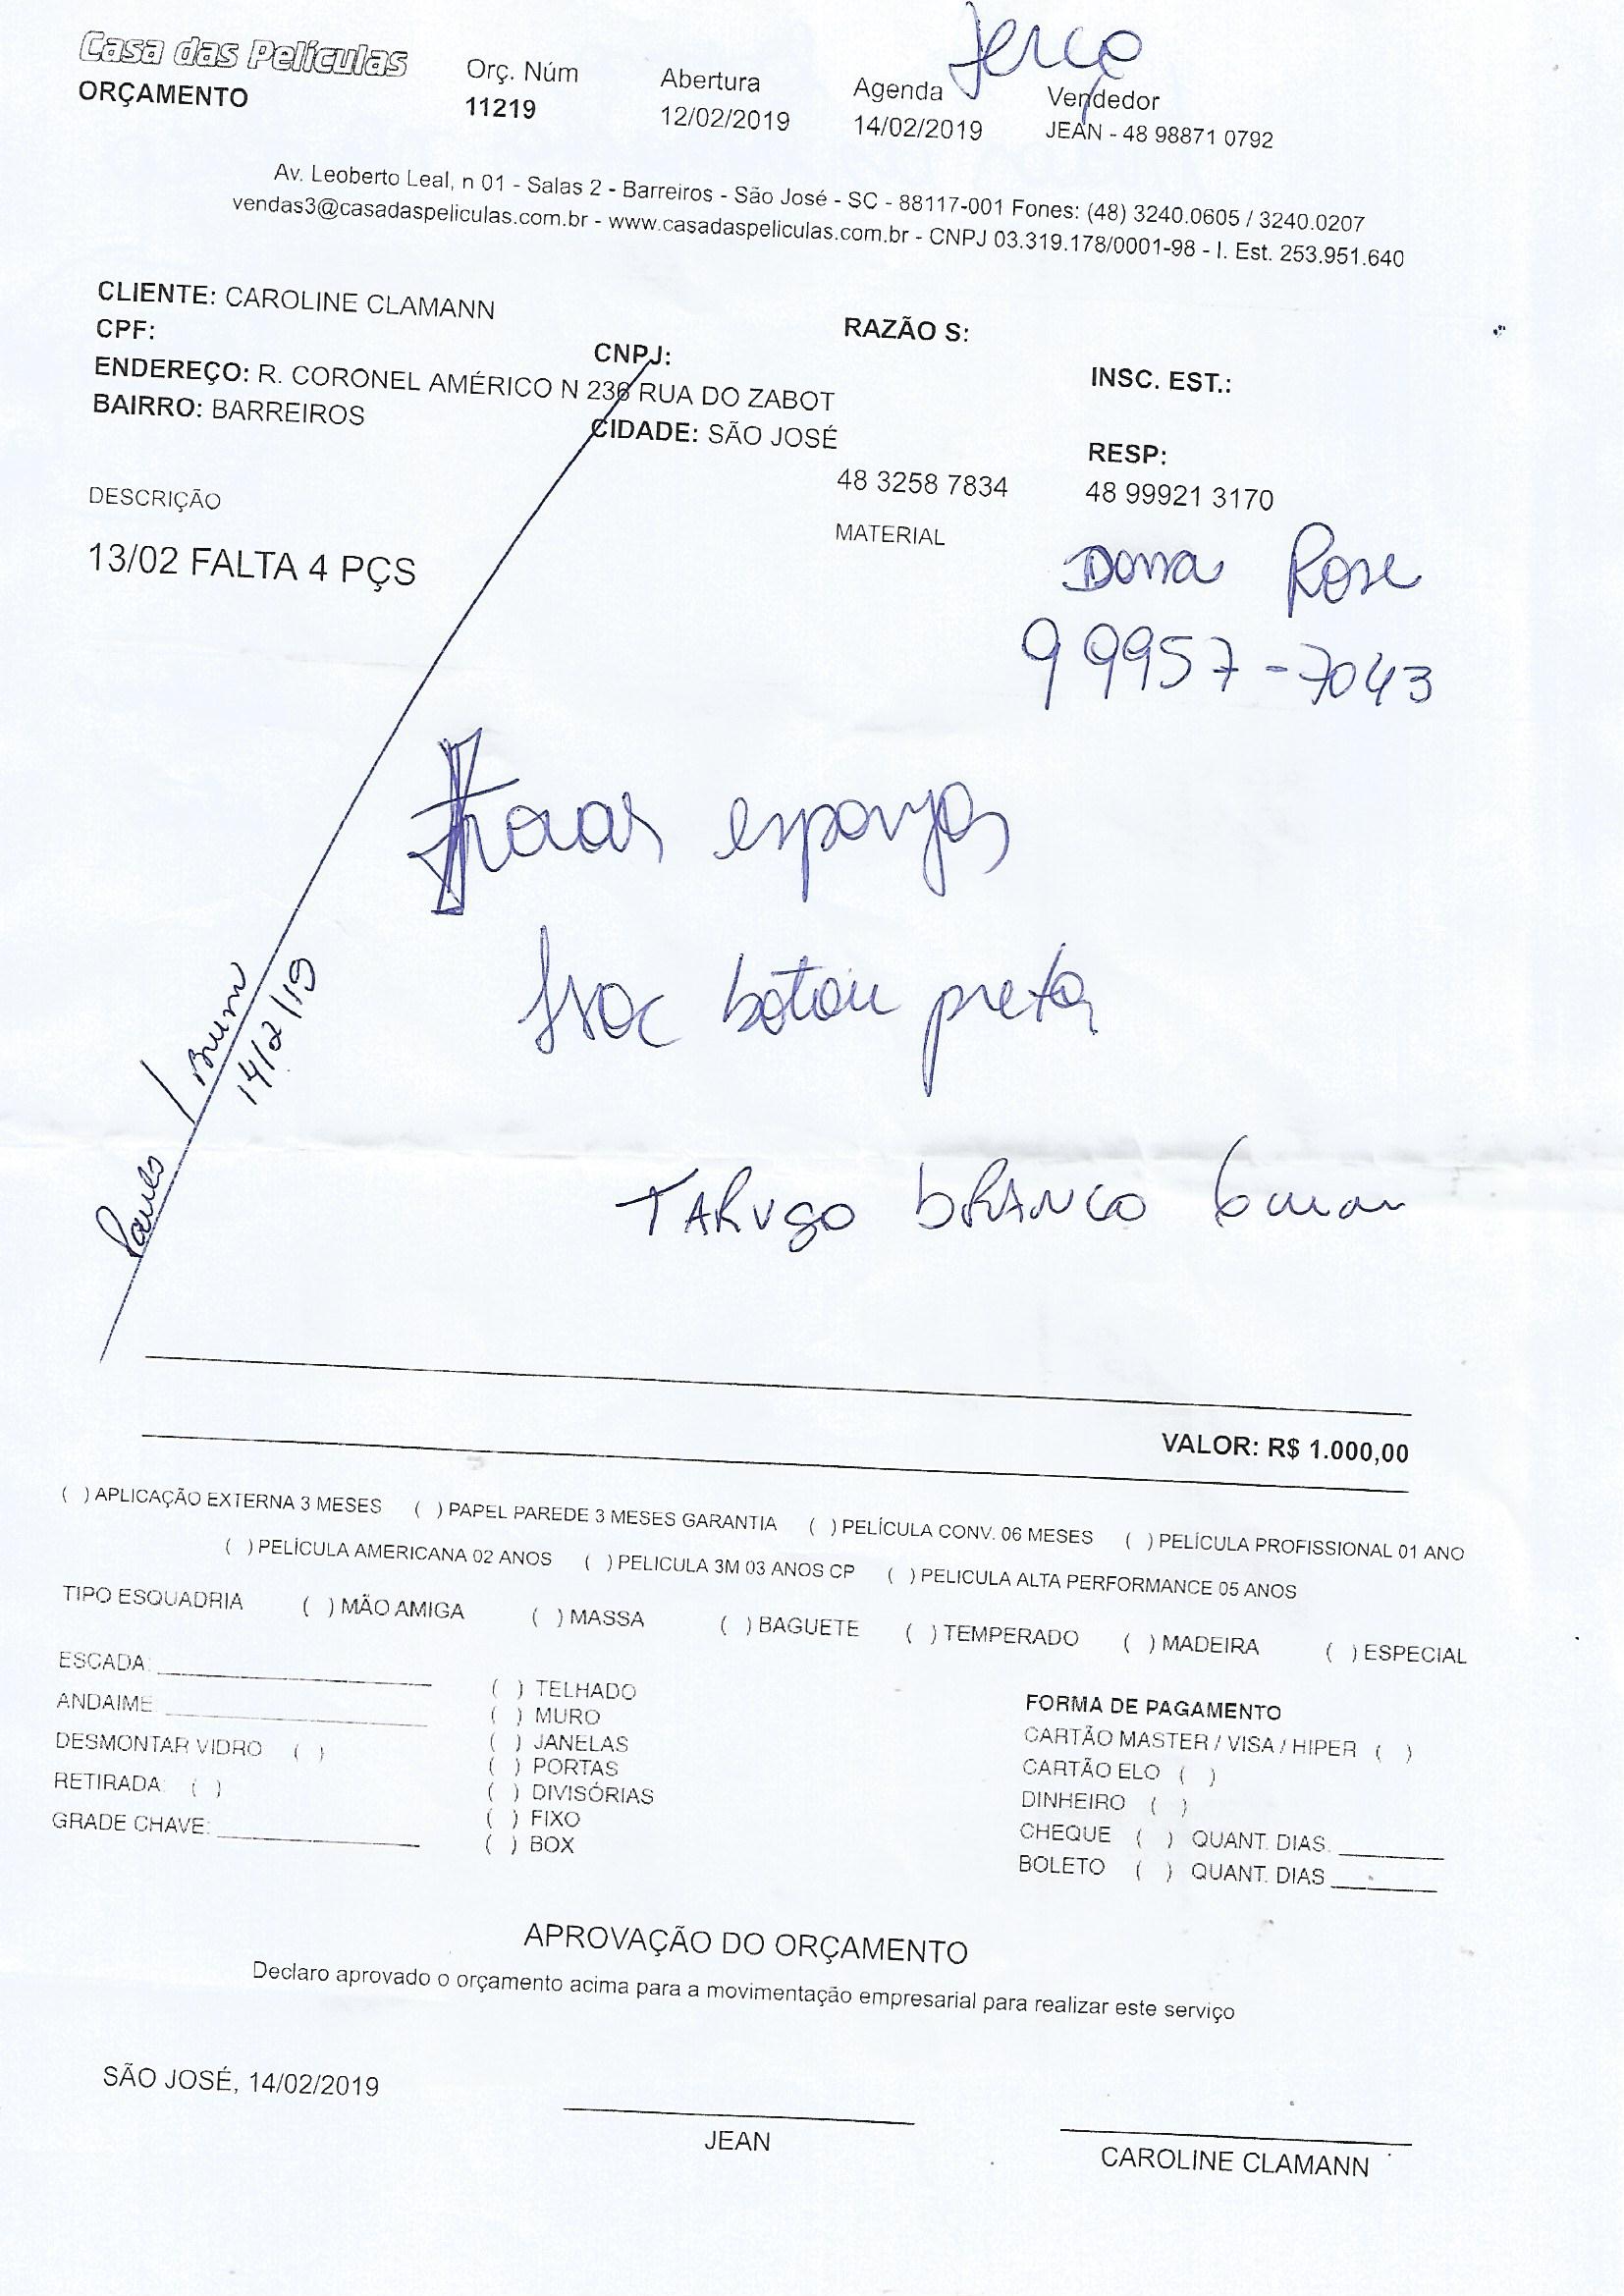 Terço
Casa das Películas
ORÇAMENTO
Orç. Núm
11219
Abertura
12/02/2019
Agenda
14/02/2019
Vendedor
JEAN - 48 98871 0792
Av. Leoberto Leal, n 01 - Salas 2 - Barreiros - São José - SC - 88117-001 Fones: (48) 3240.0605 / 3240.0207
vendas3@casadaspeliculas.com.br - www.casadaspeliculas.com.br - CNPJ 03.319.178/0001-98 - I. Est. 253.951.640
CLIENTE: CAROLINE CLAMANN
RAZÃO S:
CPF:
CNPJ:
INSC. EST.:
ENDEREÇO: R. CORONEL AMÉRICO N 236 RUA DO ZABOT
BAIRRO: BARREIROS
CIDADE: SÃO JOSÉ
RESP:
48 3258 7834
48 99921 3170
DESCRIÇÃO
MATERIAL
13/02 FALTA 4 PÇS
Dona Rose
99957-7043
esponjas
preta
Paulo
14/2/19
TARUGO BRANCO
VALOR: R$ 1.000,00
( ) APLICAÇÃO EXTERNA 3 MESES ( ) PAPEL PAREDE 3 MESES GARANTIA ( ) PELÍCULA CONV. 06 MESES ( ) PELÍCULA PROFISSIONAL 01 ANO
( ) PELÍCULA AMERICANA 02 ANOS ( ) PELICULA 3M 03 ANOS CP ( ) PELICULA ALTA PERFORMANCE 05 ANOS
TIPO ESQUADRIA ( ) MÃO AMIGA ( ) MASSA ( ) BAGUETE ( ) TEMPERADO ( ) MADEIRA ( ) ESPECIAL
ESCADA:
ANDAIME:
DESMONTAR VIDRO ( )
RETIRADA: ( )
GRADE CHAVE:
( ) TELHADO
( ) MURO
( ) JANELAS
( ) PORTAS
( ) DIVISÓRIAS
( ) FIXO
( ) BOX
FORMA DE PAGAMENTO
CARTÃO MASTER / VISA / HIPER ( )
CARTÃO ELO ( )
DINHEIRO ( )
CHEQUE ( ) QUANT. DIAS.
BOLETO ( ) QUANT. DIAS
APROVAÇÃO DO ORÇAMENTO
Declaro aprovado o orçamento acima para a movimentação empresarial para realizar este serviço
SÃO JOSÉ, 14/02/2019
JEAN
CAROLINE CLAMANN